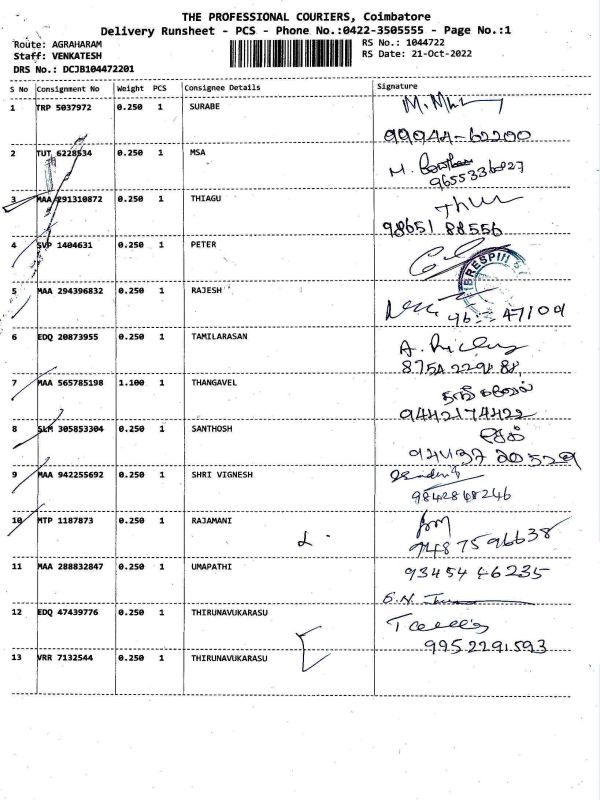 THE PROFESSIONAL COURIERS, Coimbatore
Delivery Runsheet - PCS - Phone No.:0422-3505555 - Page No.:1
Route: AGRAHARAM RS No.: 1044722
Staff: VENKATESH RS Date: 21-Oct-2022
DRS No.: DCJB104472201
S No Consignment No Weight PCS Consignee Details Signature
1 TRP 5037972 0.250 1 SURABE
99944-62200
2 TUT 6228534 0.250 1 MSA
M.
3 MAA 291310872 0.250 1 THIAGU
98651 88556
4 SVP 1404631 0.250 1 PETER
5 MAA 294396832 0.250 1 RAJESH
47109
6 EDQ 20873955 0.250 1 TAMILARASAN
A.
7 MAA 565785198 1.100 1 THANGAVEL
9442174422
8 SLM 305853304 0.250 1 SANTHOSH
9 MAA 942255692 0.250 1 SHRI VIGNESH
9842848246
10 MTP 1187873 0.250 1 RAJAMANI
9487596638
11 MAA 288832847 0.250 1 UMAPATHI
93454 46235
12 EDQ 47439776 0.250 1 THIRUNAVUKARASU
9952291593
13 VRR 7132544 0.250 1 THIRUNAVUKARASU